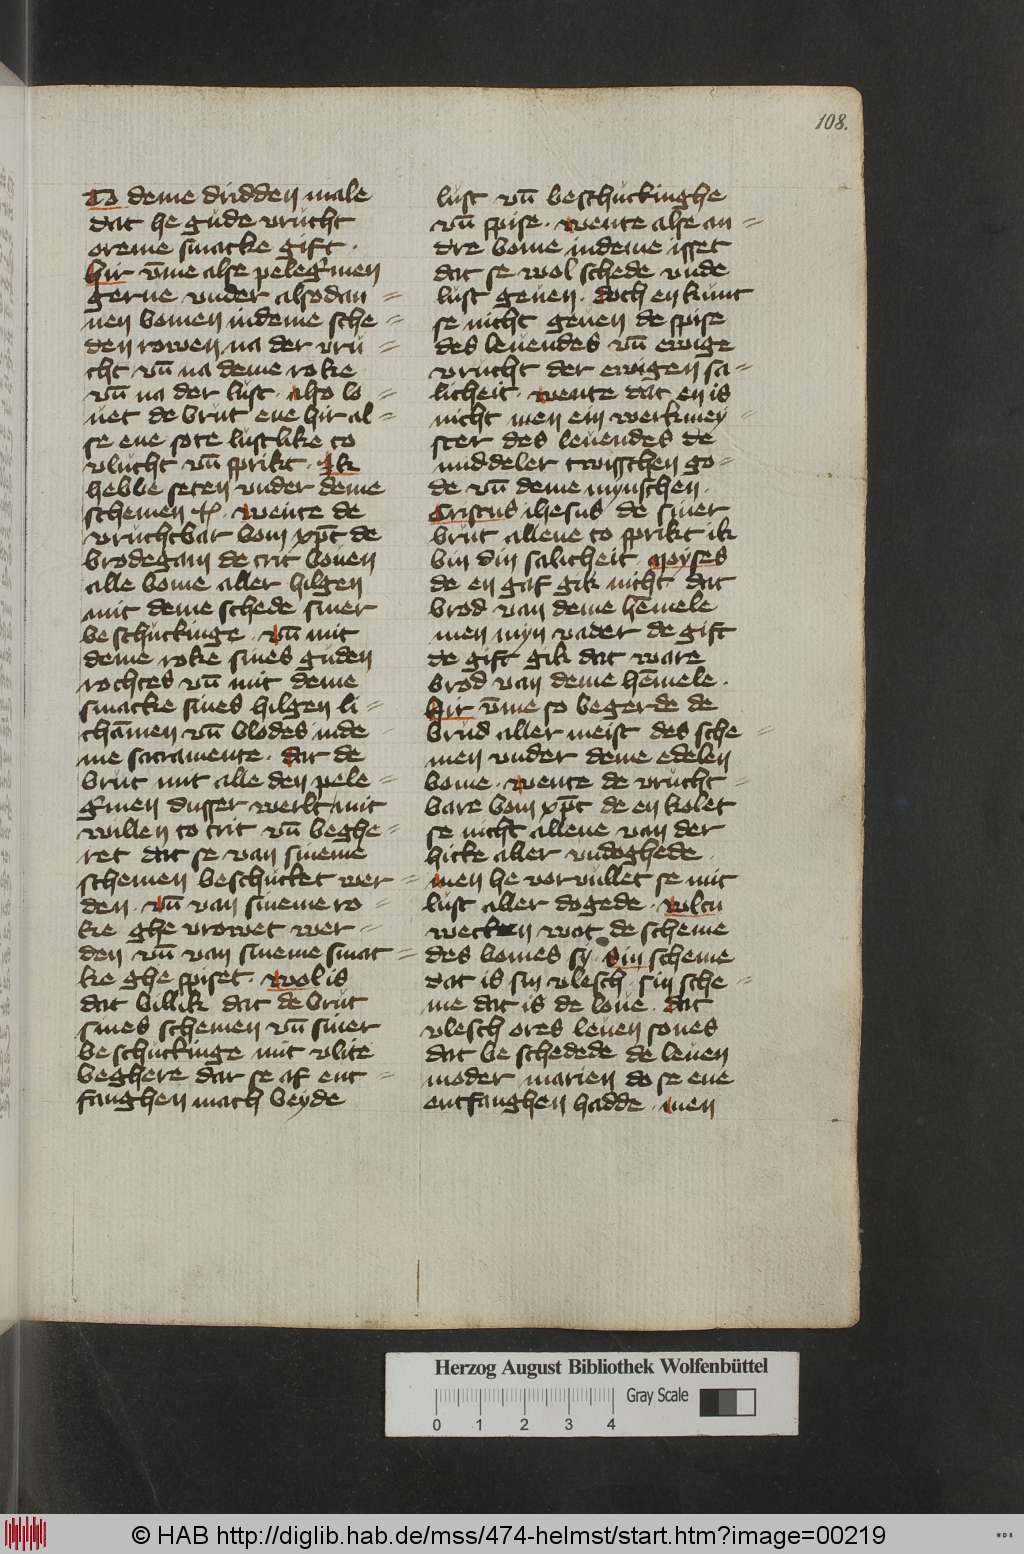 108.
To deme dridden male
dat he gude vrucht
oreme smacke gift ·
hir v̄me alse pelegͥmen
gerne vnder alsodan =
nen bomen indeme sche =
den rowen na der vru =
cht vn̄ na deme roke
vn̄ na der lust · also lo =
uet de brut ene hir al =
se ene sote lustlike to
vlucht vn̄ sprikt · Ik
hebbe seten vnder deme
schemen · wente de
vruchtbar bom xp̄c de
brodegam de trit bouen
alle bome aller hilgen
mit deme schede siner
beschuckinge · vn̄ mit
deme roke sines guden
rochtes vn̄ mit deme
smacke sines hilgen li =
cha̅men vn̄ blodes inde
me sacramente · dat de
brut mit alle den pele =
gͥmen dusser werlt mit
willen to trit vn̄ beghe =
ret dat se van sineme
schemen beschucket wer =
den · vn̄ van sineme ro =
ke ghe vrowet wer =
den vn̄ van sineme smac =
ke ghe spiset · wol is
dat billik dat de brut
sines schemen vn̄ siner
beschuckinge mit vlite
beghere dar se af ent =
fanghen mach beyde
lust vn̄ beschuckinghe
vn̄ spise · wente alse an =
dre bome indeme isset
dat se wol schede vnde
lust geuen · doch en kunt
se nicht geuen de spise
des leuendes vn̄ ewige
vrucht der ewigen sa =
licheit · wente dat en is
nicht men ein werkmey =
ster des leuendes de
middeler twisschen go =
de vn̄ deme mynschen ·
Cristus ihesus de siner
brut allene to sprikt ik
bin din salicheit · Moyses
de en gaf gik nicht dat
brod van deme he̅mele
men myn vader de gift
de gift gik dat ware
brod van deme he̅mele ·
Hir v̄me so begerde de
brud aller meist des sche =
men vnder deme edelen
bome · wente de vrucht =
bare bom xp̄c de en kolet
se nicht allene van der
hicke aller vndoghede ·
men he vorvullet se mit
lust aller dogede · wltu
wecken wat de scheme
des bomes sy · Sin scheme
dat is sin vlesch · sin sche =
me dat is de loue · dat
vlesch ores leuen sones
dat be schedede de leuen
moder marien do se ene
entfanghen hadde · men
Herzog August Bibliothek Wolfenbüttel
Gray Scale
0 1 2 3 4
© HAB http://diglib.hab.de/mss/474-helmst/start.htm?image=00219